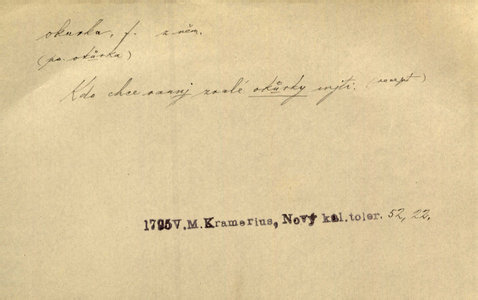 okurka, f. z něm.
(ps. okůrka)
Kdo chce rannj zralé okůrky mjti. (recept)
1795 V.M.Kramerius, Nový kal.toler. 52, 22.